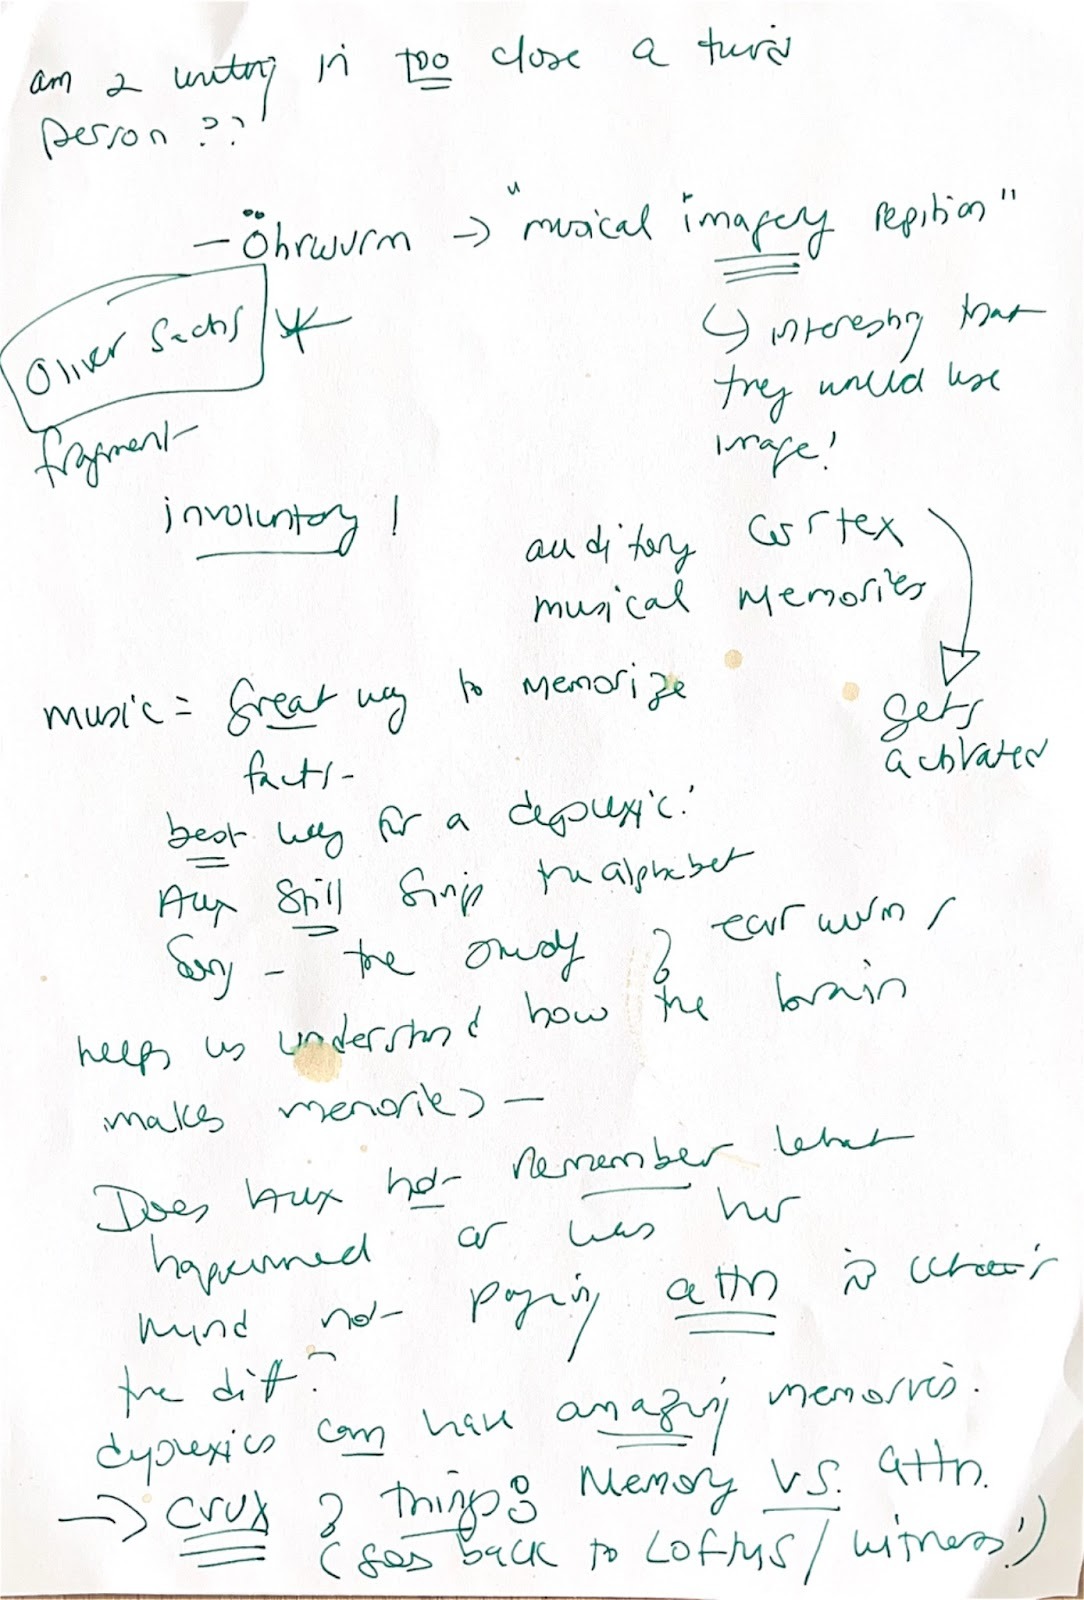 am I writing in too close a third
person??
- Öhrwurm → "musical imagery repitition"
Oliver Sachs
↳ interesting that
they would use
image!
fragment
involuntary!
auditory cortex
musical memories
gets
activated
music = great way to memorize
facts -
best way for a dyslexic!
Alex still sings the alphabet
song - the study of earwurms
helps us understand how the brain
makes memories -
Does Alex not remember what
happenned or was her
mind not paying attn & what's
the diff?
dyslexics can have amazing memories.
→ crux of things: Memory vs. attn.
(goes back to Loftus / witness!)